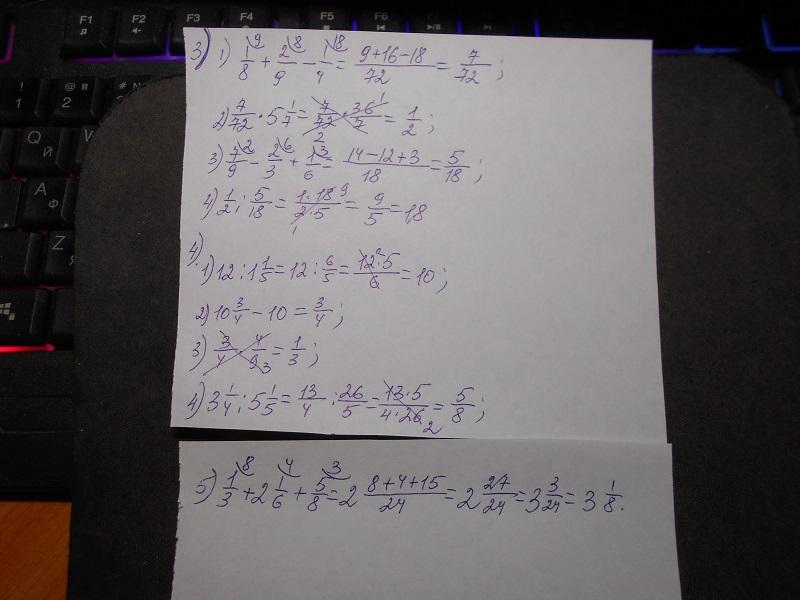 F1 F2 F3 F4 F5 F6 F7 F8
! 1 @ " 2
Q Й
A Ф
Z Я
3) 1) 1/8 + 2/9 − 1/4 = (9+16−18)/72 = 7/72 ;
2) 7/72 · 5 1/7 = 7/72 · 36/7 = 1/2 ;
3) 7/9 − 2/3 + 1/6 = (14−12+3)/18 = 5/18 ;
4) 1/2 : 5/18 = (1·18)/(2·5) = 9/5 = 1,8
4)
1) 12 : 1 1/5 = 12 : 6/5 = (12·5)/6 = 10 ;
2) 10 3/4 − 10 = 3/4 ;
3) 3/4 · 4/9 = 1/3 ;
4) 3 1/4 : 5 1/5 = 13/4 : 26/5 = (13·5)/(4·26) = 5/8 ;
5) 1/3 + 2 1/6 + 5/8 = 2 (8+4+15)/24 = 2 27/24 = 3 3/24 = 3 1/8 .